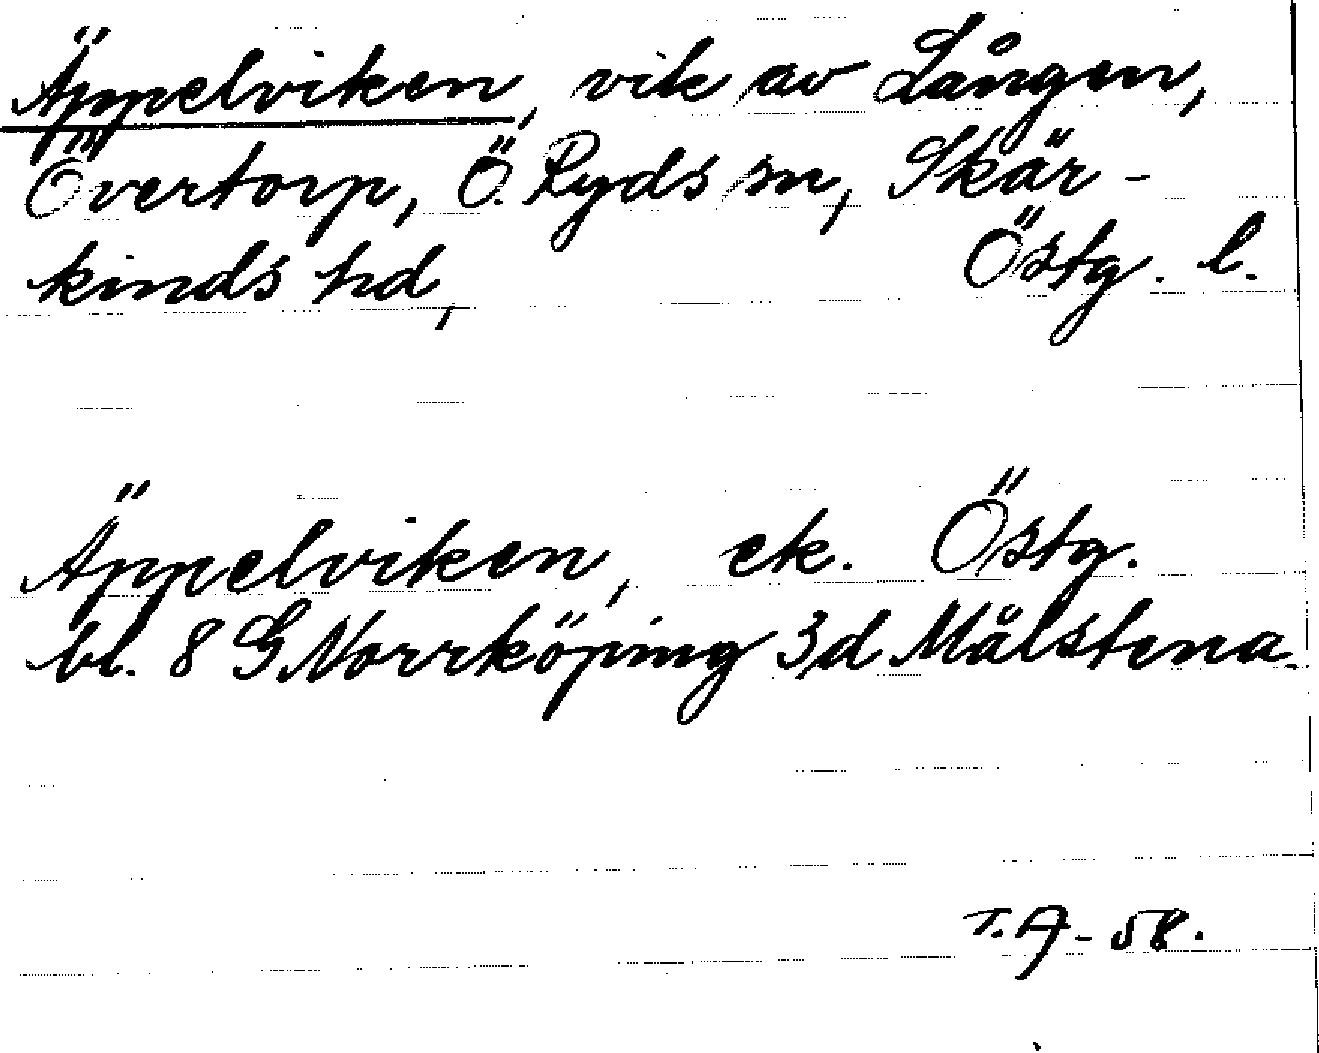 Äppelviken, vik av Lången,
Övertorp, Ö. Ryds sn, Skär-
kinds hd, Östg. l.
Äppelviken, ek. Östg.
bl. 8 G Norrköping 3d Målstena.
T.A-58.